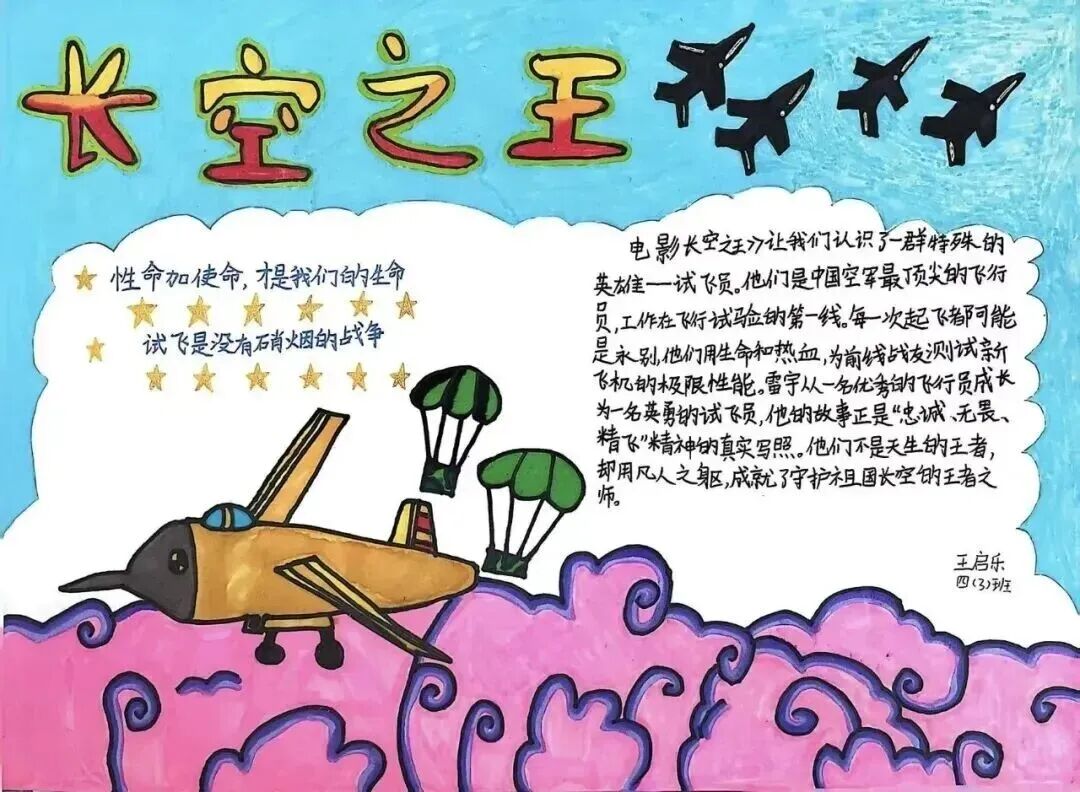 长空之王
性命加使命,才是我们的生命
试飞是没有硝烟的战争
电影长空之王》让我们认识了一群特殊的
英雄——试飞员。他们是中国空军最顶尖的飞行
员,工作在飞行试验的第一线。每一次起飞都可能
是永别,他们用生命和热血,为前线战友测试新
飞机的极限性能。雷宇从一名优秀的飞行员成长
为一名英勇的试飞员,他的故事正是“忠诚、无畏、
精飞”精神的真实写照。他们不是天生的王者,
却用凡人之躯,成就了守护祖国长空的王者之
师。
王启乐
四(3)班